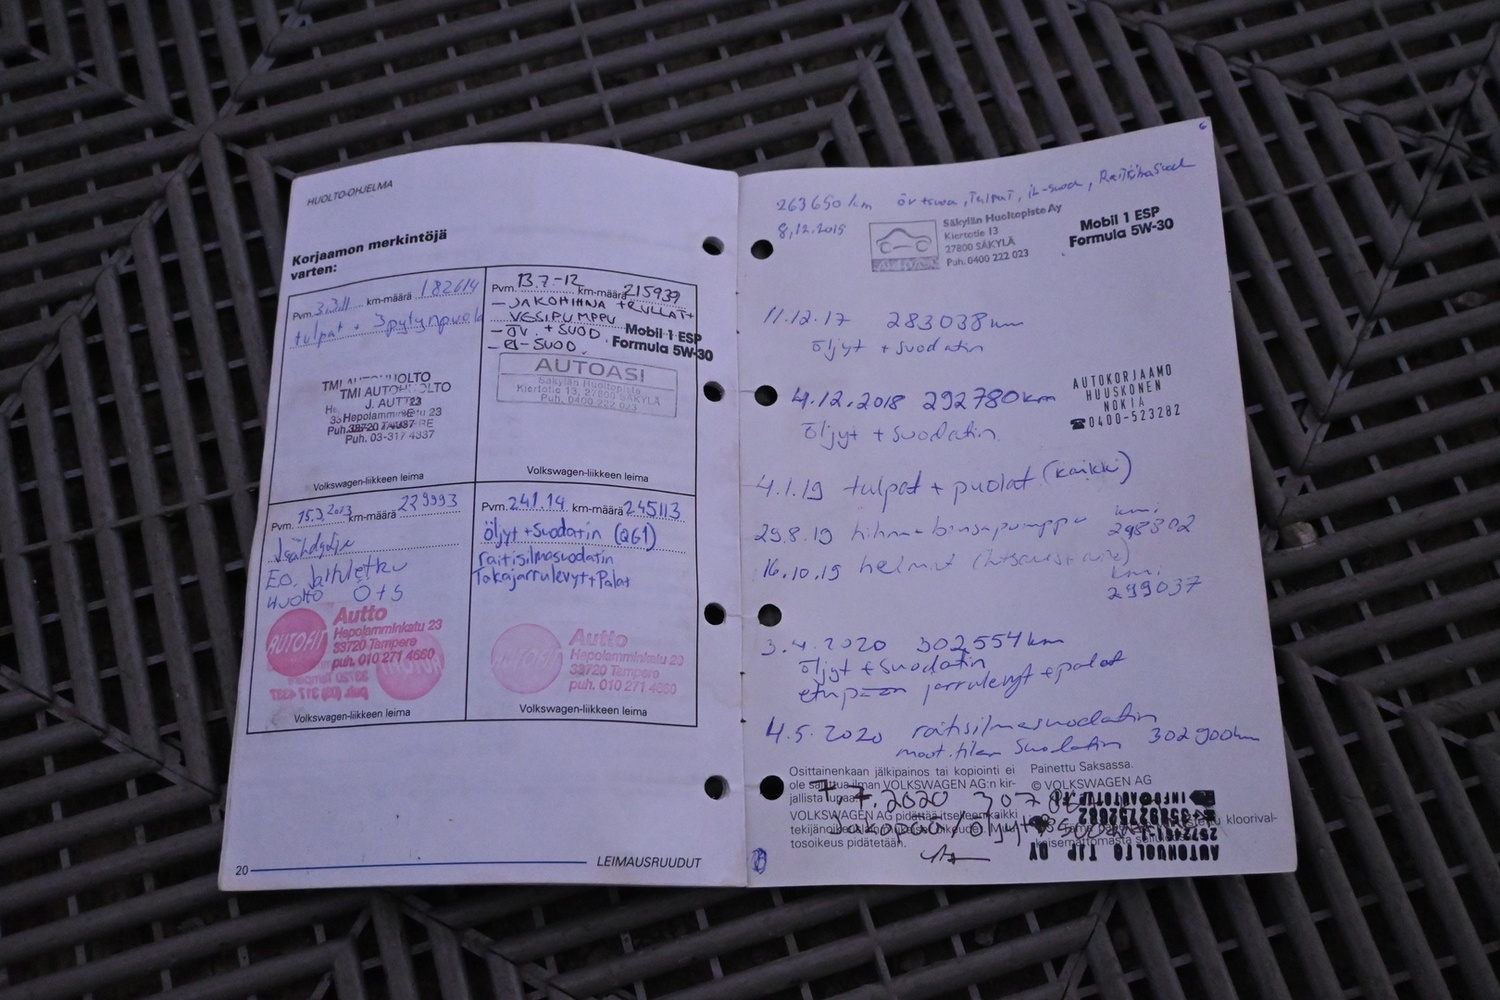 HUOLTO-OHJELMA
Korjaamon merkintöjä
varten:
Pvm. 3.3.11 km-määrä 182614
tulpat + 3pylynpuola
TMI AUTOHUOLTO
J. AUTTI
Hepolamminkatu 23
Puh. 03-317 4337
Volkswagen-liikkeen leima
Pvm. 13.7-12 km-määrä 215939
- JAKOHIHNA + RULLAT +
VESIPUMPPU
- ÖV. + SUOD. Mobil 1 ESP
Formula 5W-30
- RI-SUOD.
AUTOASI
Säkylän Huoltopiste
Kiertotie 13, 27800 SÄKYLÄ
Puh. 0400 222 023
Volkswagen-liikkeen leima
Pvm. 15.3.2013 km-määrä 229993
Eo.
Huolto Ö+S
AUTOFIT
Autto
Hepolamminkatu 23
33720 Tampere
puh. 010 271 4660
Volkswagen-liikkeen leima
Pvm. 24.1.14. km-määrä 245113
öljyt + Suodatin (Q61)
raitisilmasuodatin
Takajarrulevyt + Palat
AUTOFIT
Autto
Hepolamminkatu 23
33720 Tampere
puh. 010 271 4660
Volkswagen-liikkeen leima
20
LEIMAUSRUUDUT
6
263650 km öv+suod, Tulpat, iL-suod, Raitisilmasuod
8,12.2015
Säkylän Huoltopiste Ay
Kiertotie 13
27800 SÄKYLÄ
Puh. 0400 222 023
Mobil 1 ESP
Formula 5W-30
11.12.17 283038km
öljyt + suodatin
4.12.2018 292780km
öljyt + suodatin
AUTOKORJAAMO
HUUSKONEN
NOKIA
☎0400-523282
4.1.19 tulpat + puolat (kaikki)
29.8.19 hihna + bensapumppu km. 298302
16.10.19 helmat
km. 299037
3.4.2020 302554km
öljyt + suodatin
etupään jarrulevyt + palat
4.5.2020 raitisilmasuodatin
moot. tilan Suodatin 302900km
Osittainenkaan jälkipainos tai kopiointi ei
ole sallittua ilman VOLKSWAGEN AG:n kir-
jallista lupaa.
VOLKSWAGEN AG pidättää itselleen kaikki
tekijänoikeuslain mukaiset oikeudet. Muu-
tosoikeus pidätetään.
Painettu Saksassa.
© VOLKSWAGEN AG
kloorival-
7.7.2020
Jakopää / öljyt
AUTOHUOLTO TJP OY